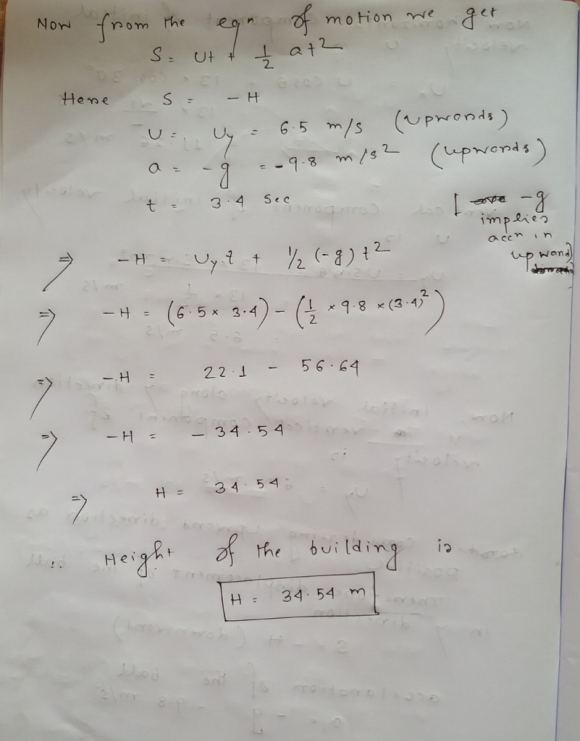 Now from the eqn of motion we get
S = Ut + 1/2 at2
Here S = - H
U = Uy = 6.5 m/s (upwards)
a = -g = -9.8 m/s2 (upwards)
t = 3.4 sec
[ -g
implies
accn in
upward
⇒ -H = Uy t + 1/2 (-g) t2
⇒ -H = (6.5 × 3.4) - (1/2 × 9.8 × (3.4)2)
⇒ -H = 22.1 - 56.64
⇒ -H = - 34.54
⇒ H = 34.54
∴ Height of the building is
H = 34.54 m